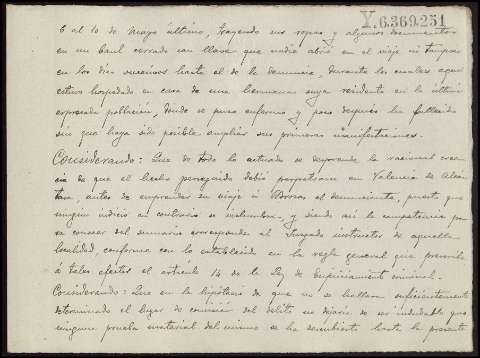 Y.6.369.251
6 al 10 de Mayo último, trayendo sus ropas y algunos documentos
en un baul cerrado con llave que nadie abrió en el viaje ni tampoco
en los días sucesivos hasta el de la denuncia, durante los cuales aquel
estuvo hospedado en casa de una hermana suya residente en la última
expresada población, donde se puso enfermo y poco después ha fallecido
sin que haya sido posible ampliar sus primeras manifestaciones.
Considerando: Que de todo lo actuado se desprende la racional creen
cia de que el hecho perseguido debió perpetrarse en Valencia de Alcán
tara, antes de emprender su viaje á el denunciante, puesto que
ningun indicio en contrario se vislumbra, y siendo así la competencia pa
ra conocer del sumario corresponde al Juzgado instructor de aquella
localidad, conforme con lo establecido en la regla general que prescribe
á tales efectos el artículo 14 de la Ley de Enjuiciamiento criminal.
Considerando: Que en la hipótesis de que no se hallara suficientemente
determinado el lugar de comisión del delito no dejaría de ser indudable que
ninguna prueba material del mismo se ha descubierto hasta la presente